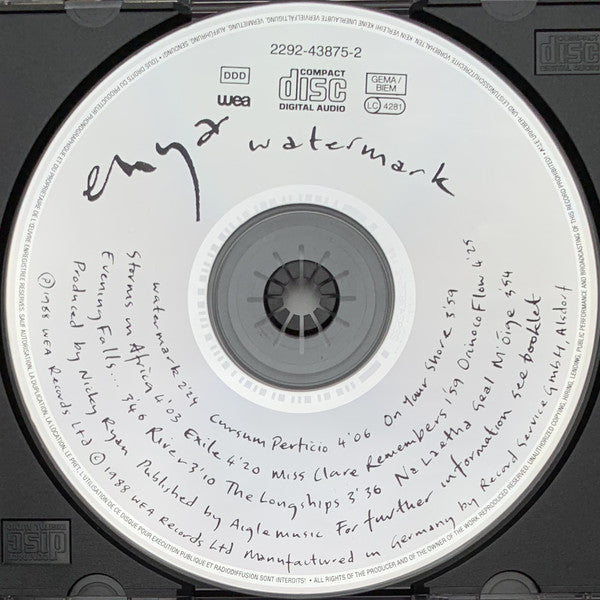 2292-43875-2
DDD
COMPACT
disc
DIGITAL AUDIO
GEMA/
BIEM
wea
LC 4281
enya watermark
watermark 2'24 Cursum Perficio 4'06 On Your Shore 3'59
Storms in Africa 4'03 Exile 4'20 Miss Clare Remembers 1'59 Orinoco Flow 4'25
Evening Falls... 3'46 River 3'10 The Longships 3'36 Na Laetha Geal M'Óige 3'54
Produced by Nicky Ryan Published by Aigle Music For further information see booklet
℗ 1988 WEA Records Ltd © 1988 WEA Records Ltd Manufactured in Germany by Record Service GmbH, Alsdorf
• TOUS DROITS DU PRODUCTEUR PHONOGRAPHIQUE ET DU PROPRIETAIRE DE L'ŒUVRE ENREGISTREE RESERVES. SAUF AUTORISATION, LA DUPLICATION, LA LOCATION, LE PRET, L'UTILISATION DE CE DISQUE POUR EXECUTION PUBLIQUE ET RADIODIFFUSION SONT INTERDITS!
• ALL RIGHTS OF THE PRODUCER AND OF THE OWNER OF THE WORK REPRODUCED RESERVED. UNAUTHORIZED COPYING, HIRING, LENDING, PUBLIC PERFORMANCE AND BROADCASTING OF THIS RECORD PROHIBITED!
• ALLE URHEBER- UND LEISTUNGSSCHUTZRECHTE VORBEHALTEN. KEIN VERLEIH! KEINE UNERLAUBTE VERVIELFÄLTIGUNG, VERMIETUNG, AUFFÜHRUNG, SENDUNG!
COMPACT
disc
DIGITAL AUDIO